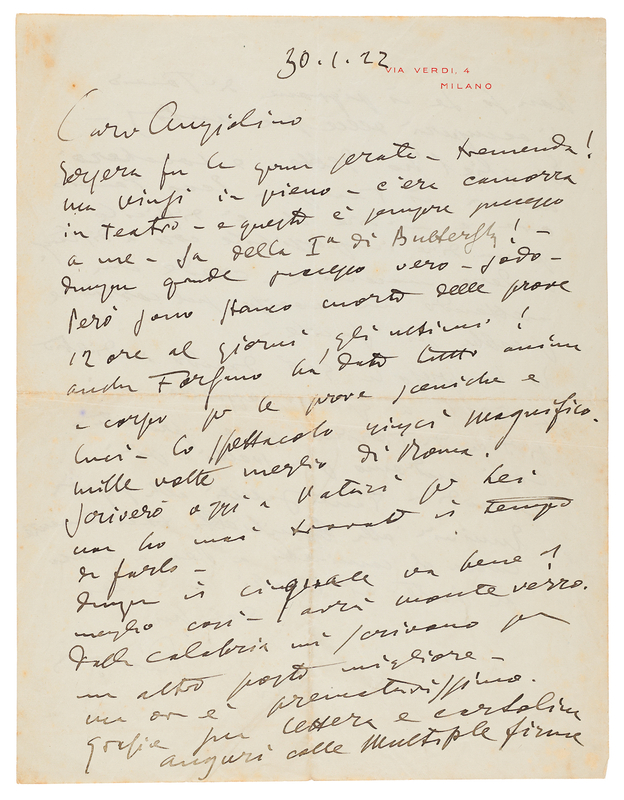 30.1.22
VIA VERDI, 4
MILANO
Caro Angiolino
Iersera fu la gran serata – tremenda!
ma vinsi in pieno – c'era camorra
in teatro – e questo è sempre successo
a me – fa della Iª di Butterfly! –
dunque grande successo vero – sodo –
Però sono stanco morto delle prove
12 ore al giorno, gli ultimi!
anche Forzano ha dato tutto anima
e corpo per le prove sceniche e
luci – lo spettacolo riuscì magnifico.
mille volte meglio di Roma.
Scriverò oggi a per Lei
non ho mai trovato il tempo
di farlo –
dunque il cinquale va bene
meglio così – avrà monteverro.
dalla calabria mi scrivono per
un altro posto migliore –
ma ora è prematurissimo.
Grazie per lettera e cartolina
auguri colle multiple firme